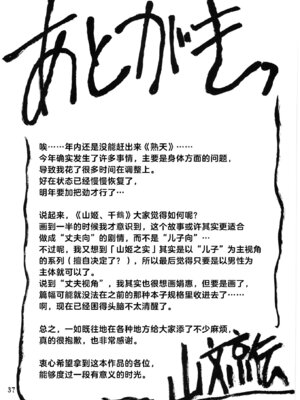 あとがきっ
唉……年内还是没能赶出来《熟天》……
今年确实发生了许多事情，主要是身体方面的问题，
导致我花了很多时间在调整上。
好在状态已经慢慢恢复了，
明年要加把劲才行了…
说起来，《山姬、千鹤》大家觉得如何呢？
画到一半的时候我才意识到，这个故事或许其实更适合
做成“丈夫向”的剧情，而不是“儿子向”…
不过呢，我又想到「山姬之实」其实是以“儿子”为主视角
的系列（擅自决定了？），所以最后觉得只要是以男性为
主体就可以了。
说到“丈夫视角”，我其实也很想画娟惠，但要是画了，
篇幅可能就没法在之前的那种本子规格里收进去了……
啊，现在已经困得头脑不太清醒了。
总之，一如既往地在各种地方给大家添了不少麻烦，
真的很抱歉，也非常感谢。
衷心希望拿到这本作品的各位，
能够度过一段有意义的时光。
山文京伝
37